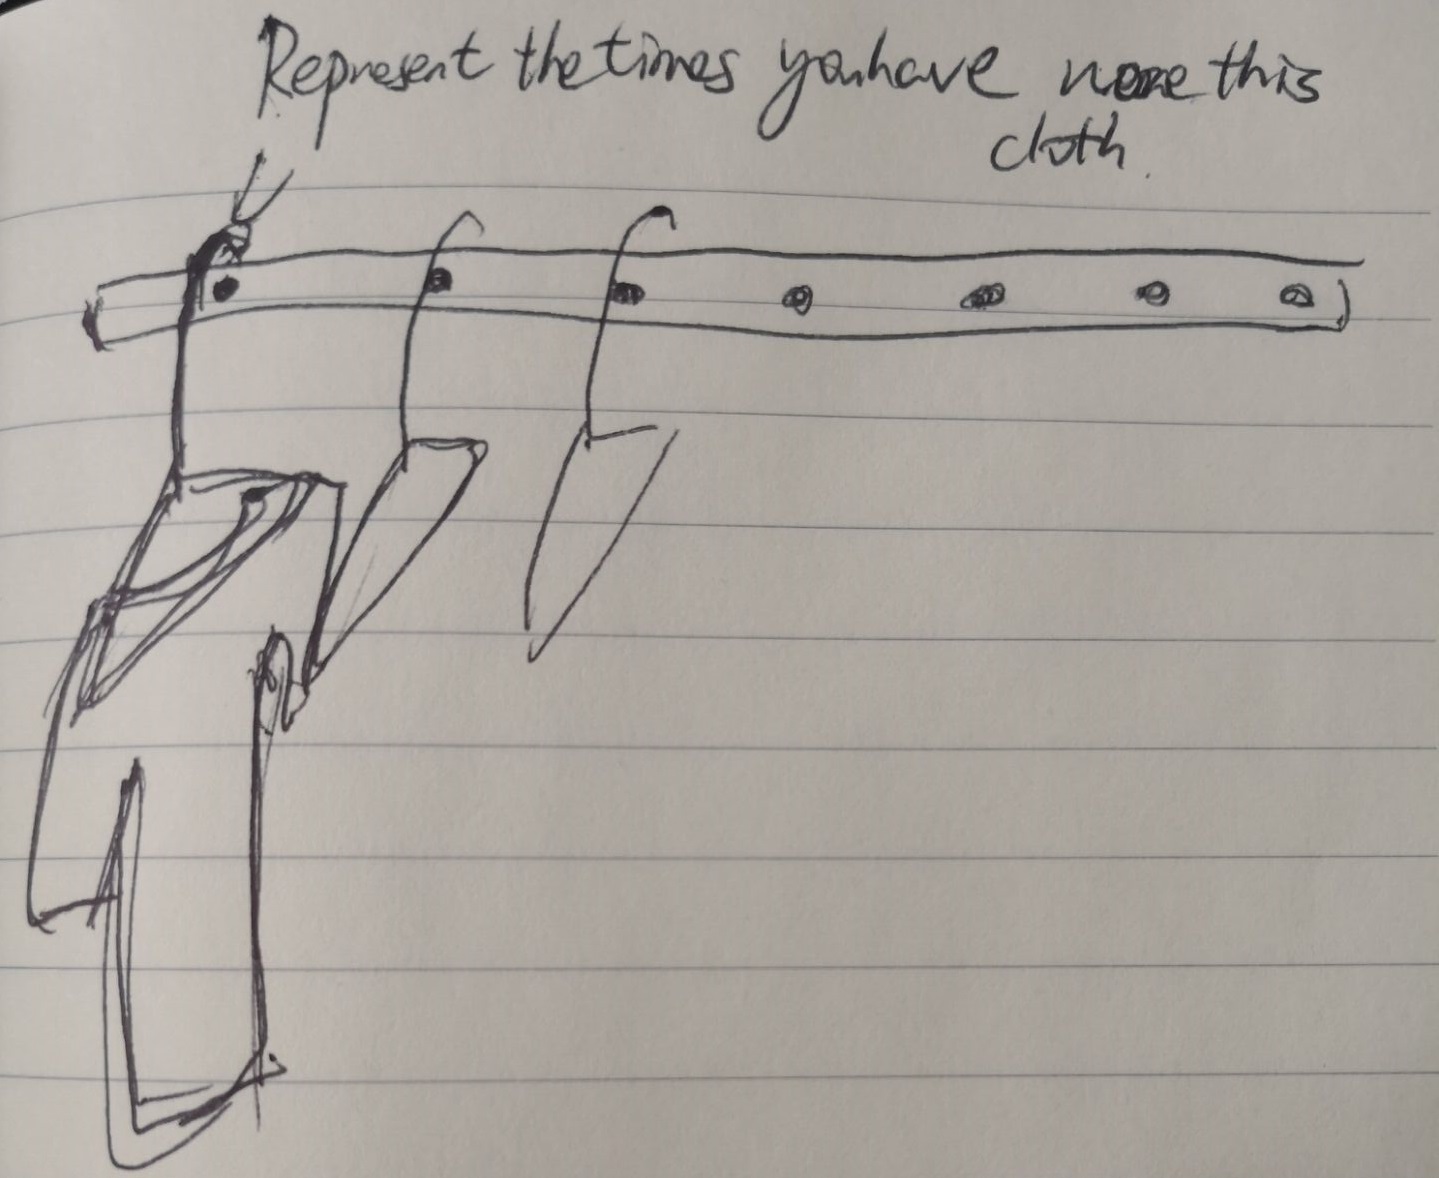 Represent the times you have wore this
cloth.